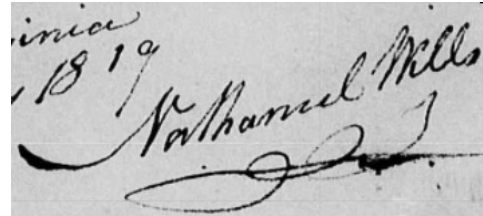 inia
1819
Nathaniel Wills